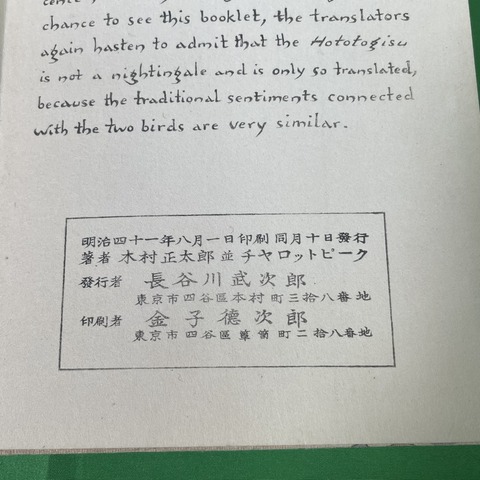 chance to see this booklet, the translators
again hasten to admit that the Hototogisu
is not a nightingale and is only so translated,
because the traditional sentiments connected
with the two birds are very similar.
明治四十一年八月一日印刷 同月十日發行
著者 木村正太郎 並 チヤロットピーク
發行者 長谷川武次郎
東京市四谷區本村町三拾八番地
印刷者 金子德次郎
東京市四谷區簞笥町二拾八番地